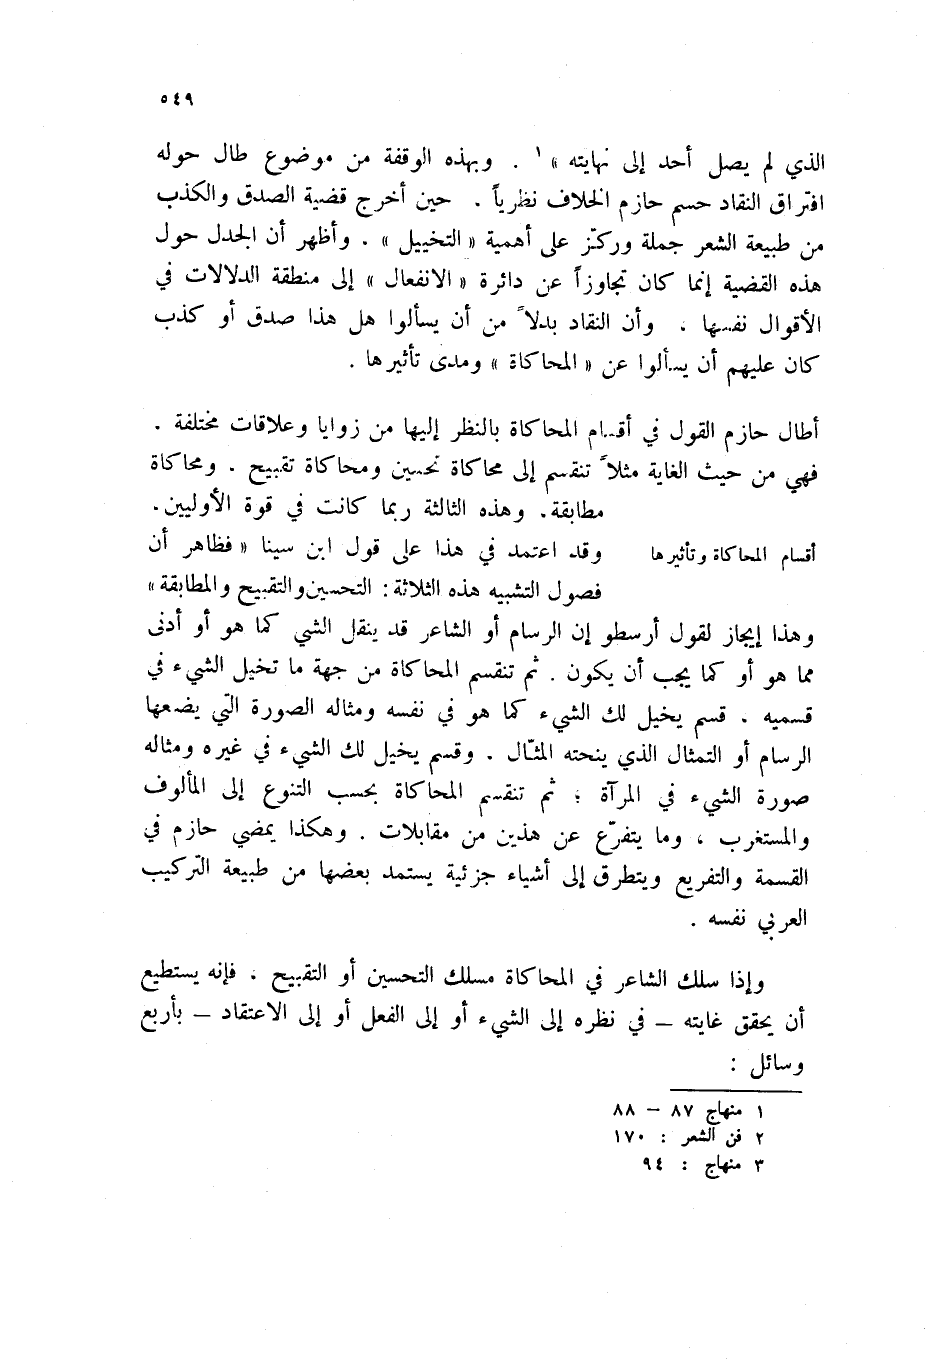 ٥٤٩
الذي لم يصل أحد إلى نهايته »١ . وبهذه الوقفة من موضوع طال حوله
افتراق النقاد حسم حازم الخلاف نظرياً . حين أخرج قضية الصدق والكذب
من طبيعة الشعر جملة وركّز على أهمية « التخييل » . وأظهر أن الجدل حول
هذه القضية إنما كان تجاوزاً عن دائرة « الانفعال » إلى منطقة الدلالات في
الأقوال نفسها . وأن النقاد بدلاً من أن يسألوا هل هذا صدق أو كذب
كان عليهم أن يسألوا عن « المحاكاة » ومدى تأثيرها .
أطال حازم القول في أقسام المحاكاة بالنظر إليها من زوايا وعلاقات مختلفة .
فهي من حيث الغاية مثلاً تنقسم إلى محاكاة تحسين ومحاكاة تقبيح . ومحاكاة
مطابقة . وهذه الثالثة ربما كانت في قوة الأوليين .
أقسام المحاكاة وتأثيرها
وقد اعتمد في هذا على قول ابن سينا « فظاهر أن
فصول التشبيه هذه الثلاثة : التحسين والتقبيح والمطابقة »
وهذا إيجاز لقول أرسطو إن الرسام أو الشاعر قد ينقل الشي كما هو أو أدنى
مما هو أو كما يجب أن يكون . ثم تنقسم المحاكاة من جهة ما تخيل الشيء في
قسميه . قسم يخيل لك الشيء كما هو في نفسه ومثاله الصورة التي يضعها
الرسام أو التمثال الذي ينحته المثّال . وقسم يخيل لك الشيء في غيره ومثاله
صورة الشيء في المرآة ؛ ثم تنقسم المحاكاة بحسب التنوع إلى المألوف
والمستغرب ، وما يتفرّع عن هذين من مقابلات . وهكذا يمضي حازم في
القسمة والتفريع ويتطرق إلى أشياء جزئية يستمد بعضها من طبيعة التركيب
العربي نفسه .
وإذا سلك الشاعر في المحاكاة مسلك التحسين أو التقبيح ، فإنه يستطيع
أن يحقق غايته – في نظره إلى الشيء أو إلى الفعل أو إلى الاعتقاد – بأربع
وسائل :
١ منهاج ٨٧ – ٨٨
٢ فن الشعر : ١٧٠
٣ منهاج : ٩٤